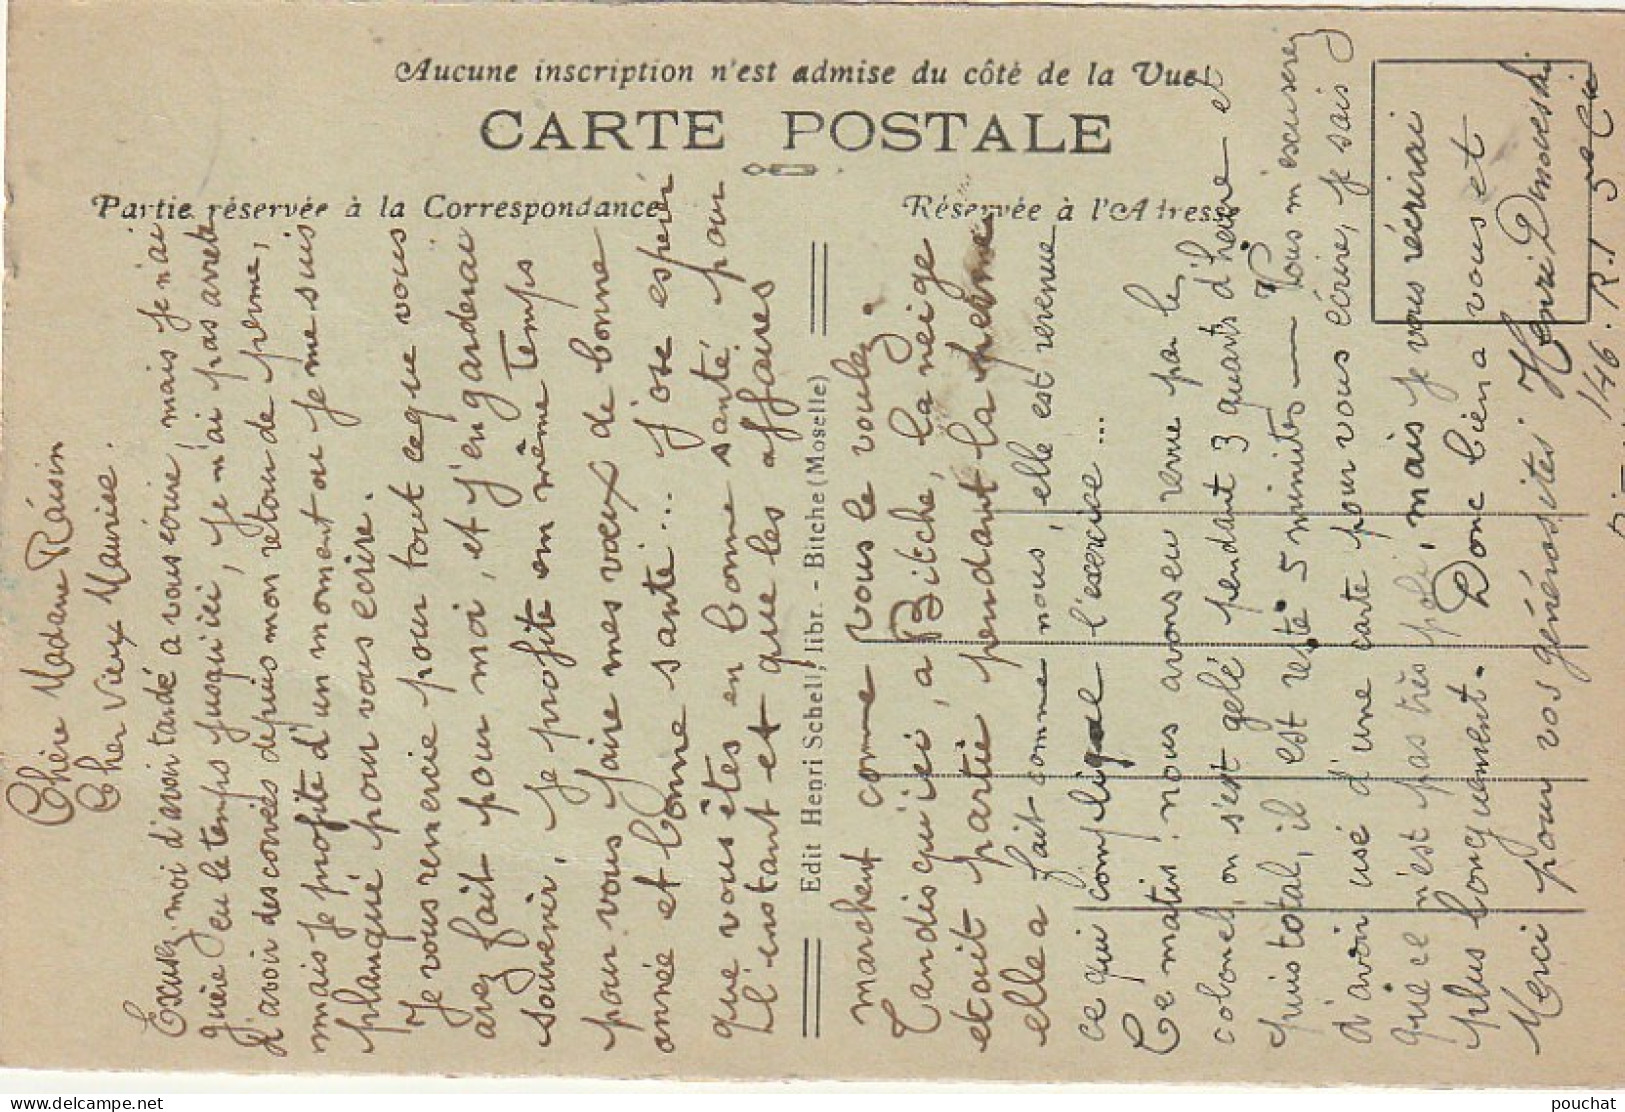 Aucune inscription n'est admise du côté de la Vue
CARTE POSTALE
Partie réservée à la Correspondance
Réservée à l'Adresse
Edit Henri Schell, libr. - Bitche (Moselle)
Chère Madame Raisin
Cher vieux Maurice.
Excusez-moi d'avoir tardé a vous écrire, mais je n'ai
guère eu le temps jusqu'ici, je n'ai pas arrêté
d'avoir des corvées depuis mon retour de perme,
mais je profite d'un moment ou je me suis
planqué pour vous ecrire.
Je vous remercie pour tout ce que vous
avez fait pour moi, et j'en garderai
souvenir, je profite en même temps
pour vous faire mes vœux de bonne
année et bonne santé... j'ose espérer
que vous êtes en bonne santé pour
l'instant et que les affaires
marchent comme vous le voulez.
Tandis qu'ici, a Bitche, la neige
etait partie pendant la perme
elle a fait comme nous, elle est revenue
ce qui complique l'exercice...
Ce matin, nous avons eu revue par le
colonel, on s'est gelé pendant 3 quarts d'heure et
puis total, il est resté 5 minutes — Vous m'excuserez
d'avoir usé d'une carte pour vous écrire, je sais
que ce n'est pas très poli, mais je vous récrirai
plus longuement. Donc bien a vous et
Merci pour vos générosités. Henri
146. R.I
pouchat